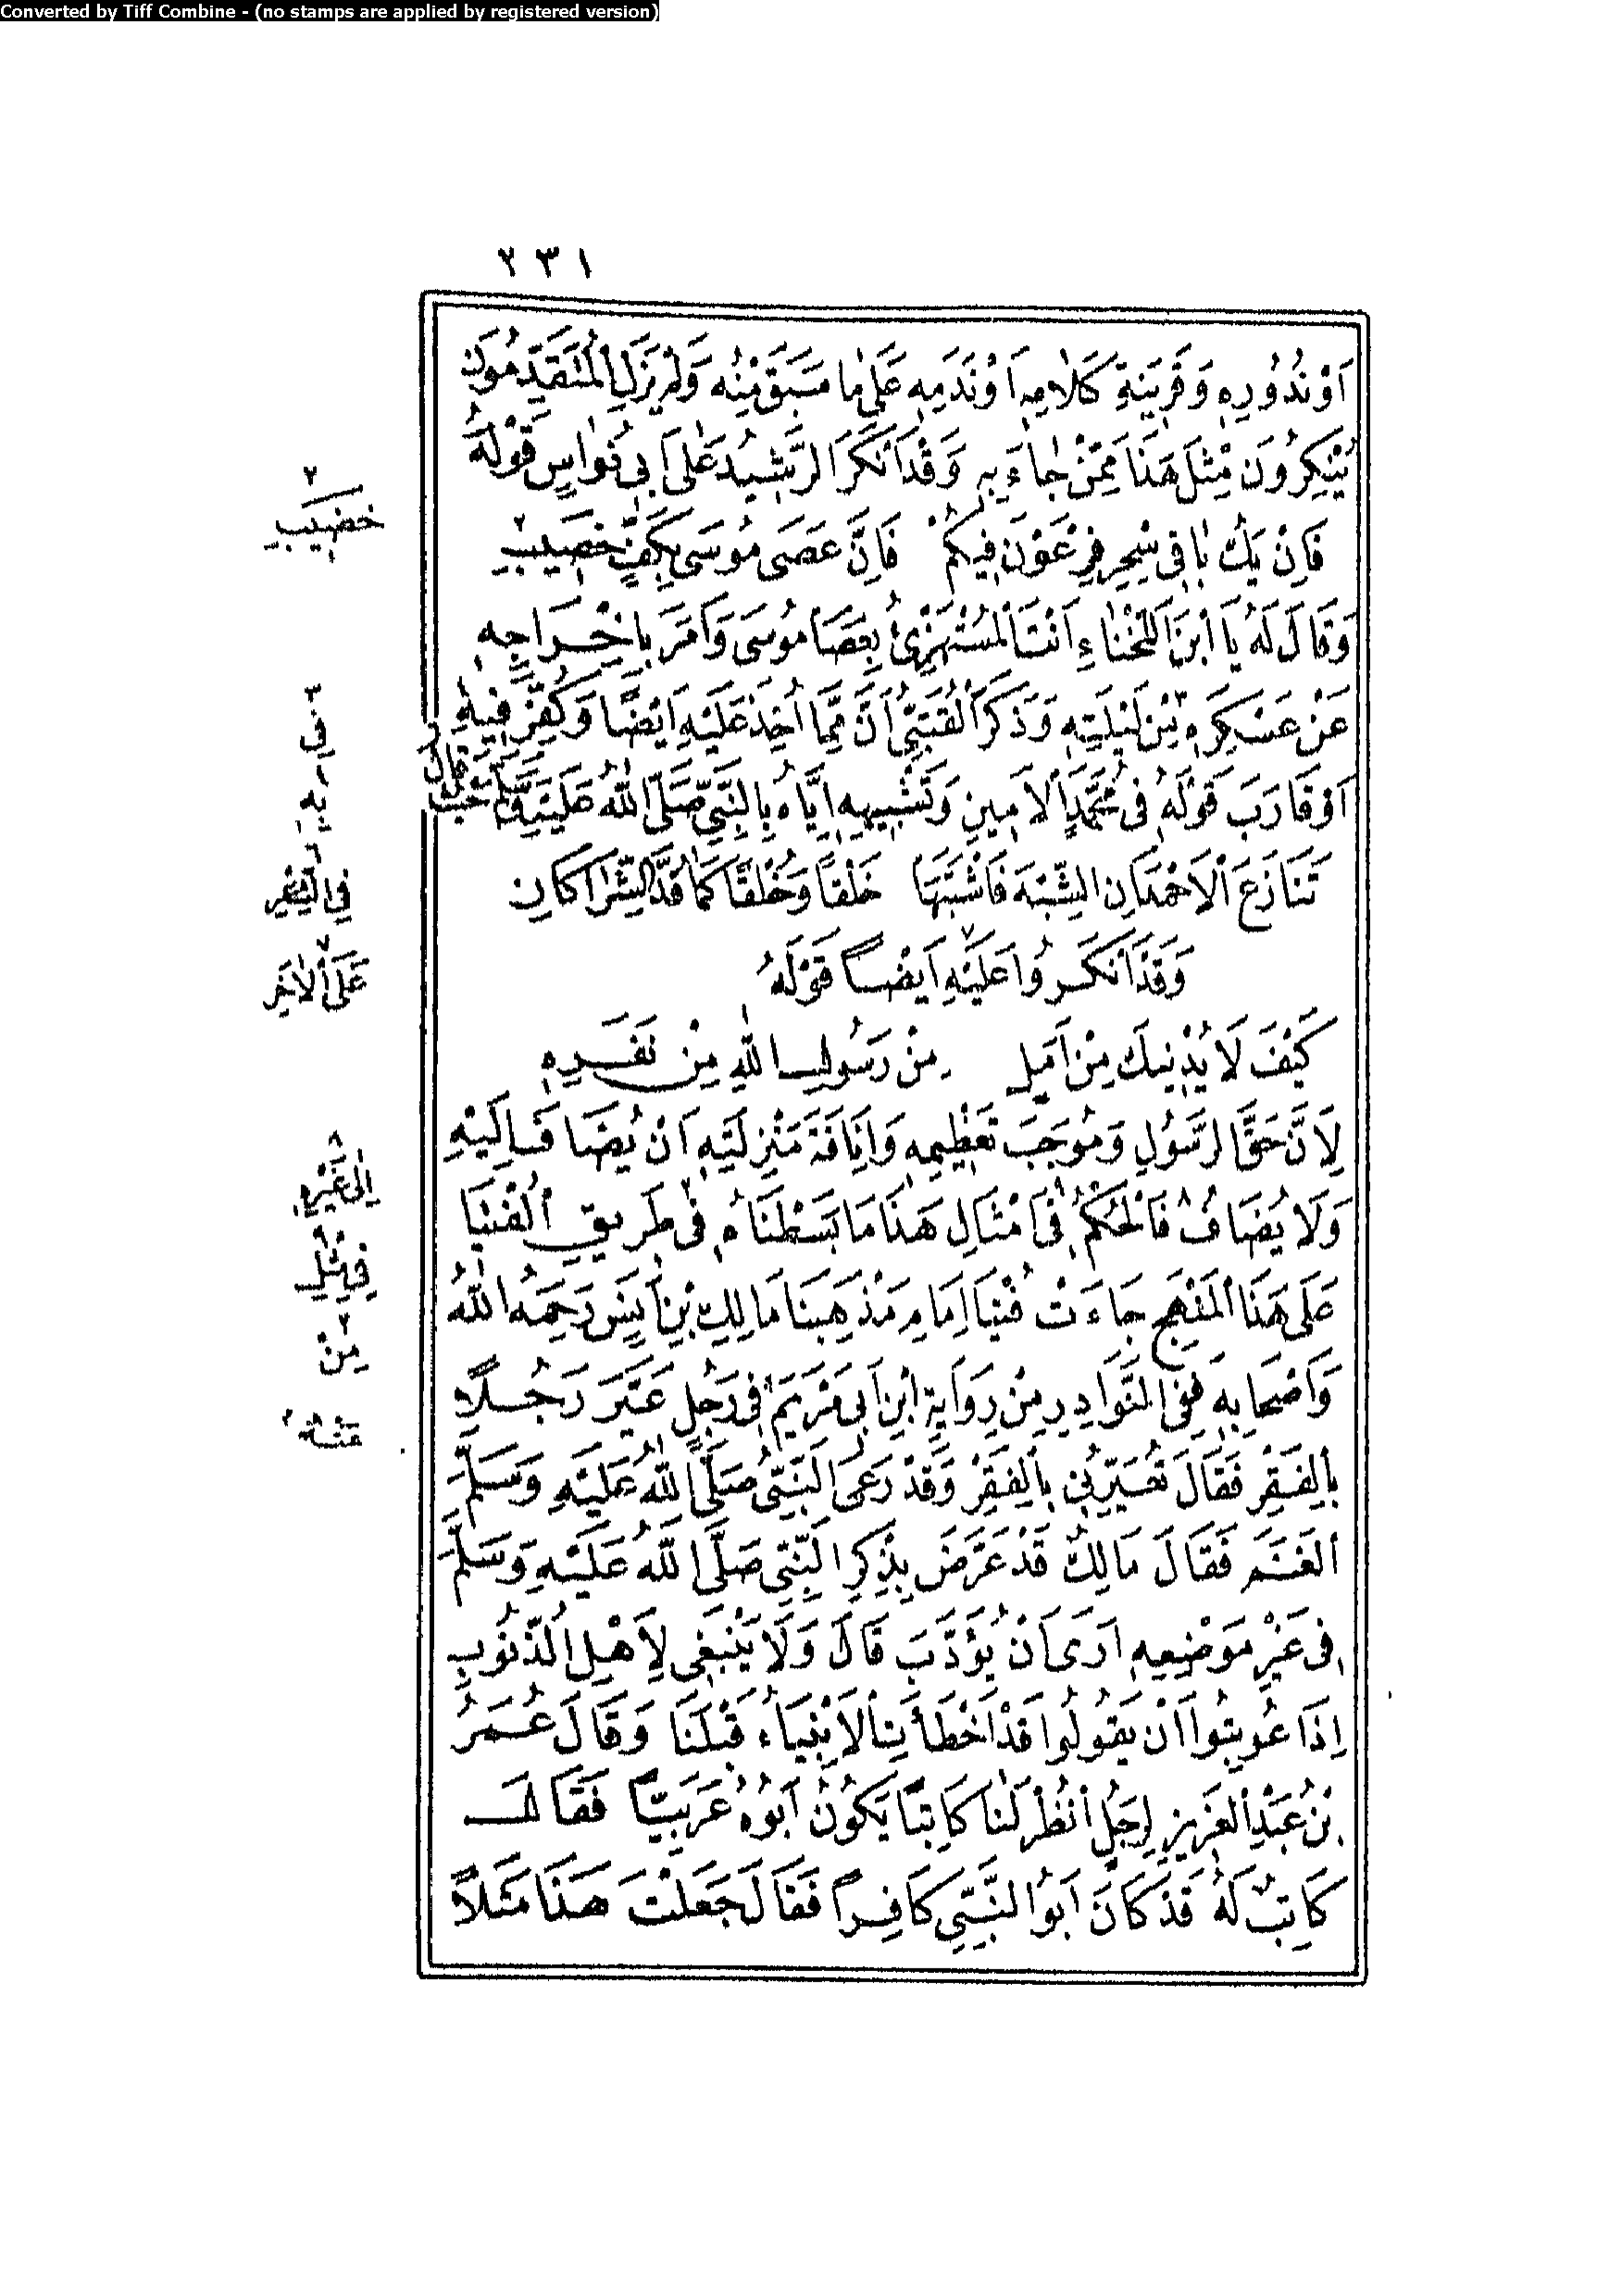 Converted by Tiff Combine - (no stamps are applied by registered version)
٢٣١
اَوْ نُدُورِهِ وَقَرِينَةِ كَلَامِهِ اَوْ نَدَمِهِ عَلَى مَا سَبَقَ مِنْهُ وَلَمْ يَزَلِ الْمُتَقَدِّمُونَ
يُنْكِرُونَ مِثْلَ هَذَا مِمَّنْ جَاءَ بِهِ وَقَدْ اَنْكَرَ الرَّشِيدُ عَلَى اَبِى نُوَاسٍ قَوْلَهُ
فَاِنْ يَكُ بَاقِى سِحْرِ فِرْعَوْنَ فِيكُمْ فَاِنَّ عَصَى مُوسَى بِكَفِّ خَصِيبِ
وَقَالَ لَهُ يَا ابْنَ اللَّخْنَاءِ اَنْتَ الْمُسْتَهْزِئُ بِعَصَا مُوسَى وَاَمَرَ بِاِخْرَاجِهِ
عَنْ عَسْكَرِهِ مِنْ لَيْلَتِهِ وَذَكَرَ الْقُتَبِىُّ اَنَّ مِمَّا اُخِذَ عَلَيْهِ اَيْضًا وَكُفِّرَ فِيهِ
اَوْ قَارَبَ قَوْلُهُ فِى مُحَمَّدٍ الْاَمِينِ وَتَشْبِيهِهِ اِيَّاهُ بِالنَّبِىِّ صَلَّى اللهُ عَلَيْهِ وَسَلَّمَ حَيْثُ قَالَ
تَنَازَعَ الْاَحْمَدَانِ الشِّبْهَ فَاشْتَبَهَا خَلْقًا وَخُلْقًا كَمَا قُدَّ الشِّرَاكَانِ
وَقَدْ اَنْكَرُوا عَلَيْهِ اَيْضًا قَوْلَهُ
كَيْفَ لَا يُدْنِيكَ مِنْ اَمَلٍ مِنْ رَسُولِ اللهِ مِنْ نَفَرِهِ
لِاَنَّ حَقَّ الرَّسُولِ وَمُوجَبَ تَعْظِيمِهِ وَاِنَافَةَ مَنْزِلَتِهِ اَنْ يُضَافَ اِلَيْهِ
وَلَا يُضَافُ فَالْحُكْمُ فِى اَمْثَالِ هَذَا مَا بَسَطْنَاهُ فِى طَرِيقِ الْفُتْيَا
عَلَى هَذَا الْمَنْهَجِ جَاءَتْ فُتْيَا اِمَامِ مَذْهَبِنَا مَالِكِ بْنِ اَنَسٍ رَحِمَهُ اللهُ
وَاَصْحَابِهِ فَفِى النَّوَادِرِ مِنْ رِوَايَةِ ابْنِ اَبِى مَرْيَمَ فِى رَجُلٍ عَيَّرَ رَجُلًا
بِالْفَقْرِ فَقَالَ تُعَيِّرُنِى بِالْفَقْرِ وَقَدْ رَعَى النَّبِىُّ صَلَّى اللهُ عَلَيْهِ وَسَلَّمَ
الْغَنَمَ فَقَالَ مَالِكٌ قَدْ عَرَّضَ بِذِكْرِ النَّبِىِّ صَلَّى اللهُ عَلَيْهِ وَسَلَّمَ
فِى غَيْرِ مَوْضِعِهِ اَرَى اَنْ يُؤَدَّبَ قَالَ وَلَا يَنْبَغِى لِاَهْلِ الذُّنُوبِ
اِذَا عُوتِبُوا اَنْ يَقُولُوا قَدْ اَخْطَأَتِ الْاَنْبِيَاءُ قَبْلَنَا وَقَالَ عُمَرُ
بْنُ عَبْدِ الْعَزِيزِ لِرَجُلٍ اُنْظُرْ لَنَا كَاتِبًا يَكُونُ اَبُوهُ عَرَبِيًّا فَقَالَ
كَاتِبٌ لَهُ قَدْ كَانَ اَبُو النَّبِىِّ كَافِرًا فَقَالَ جَعَلْتَ هَذَا مَثَلًا
٢
خَضِيبِ
٣
فِى
٤
بِهِ
٦
فِى الشِّعْرِ
٧
عَلَى الْاٰخَرِ
٨
اِلَى غَيْرِهِ
٩
فِى مِثْلِ
٢
مِنْ